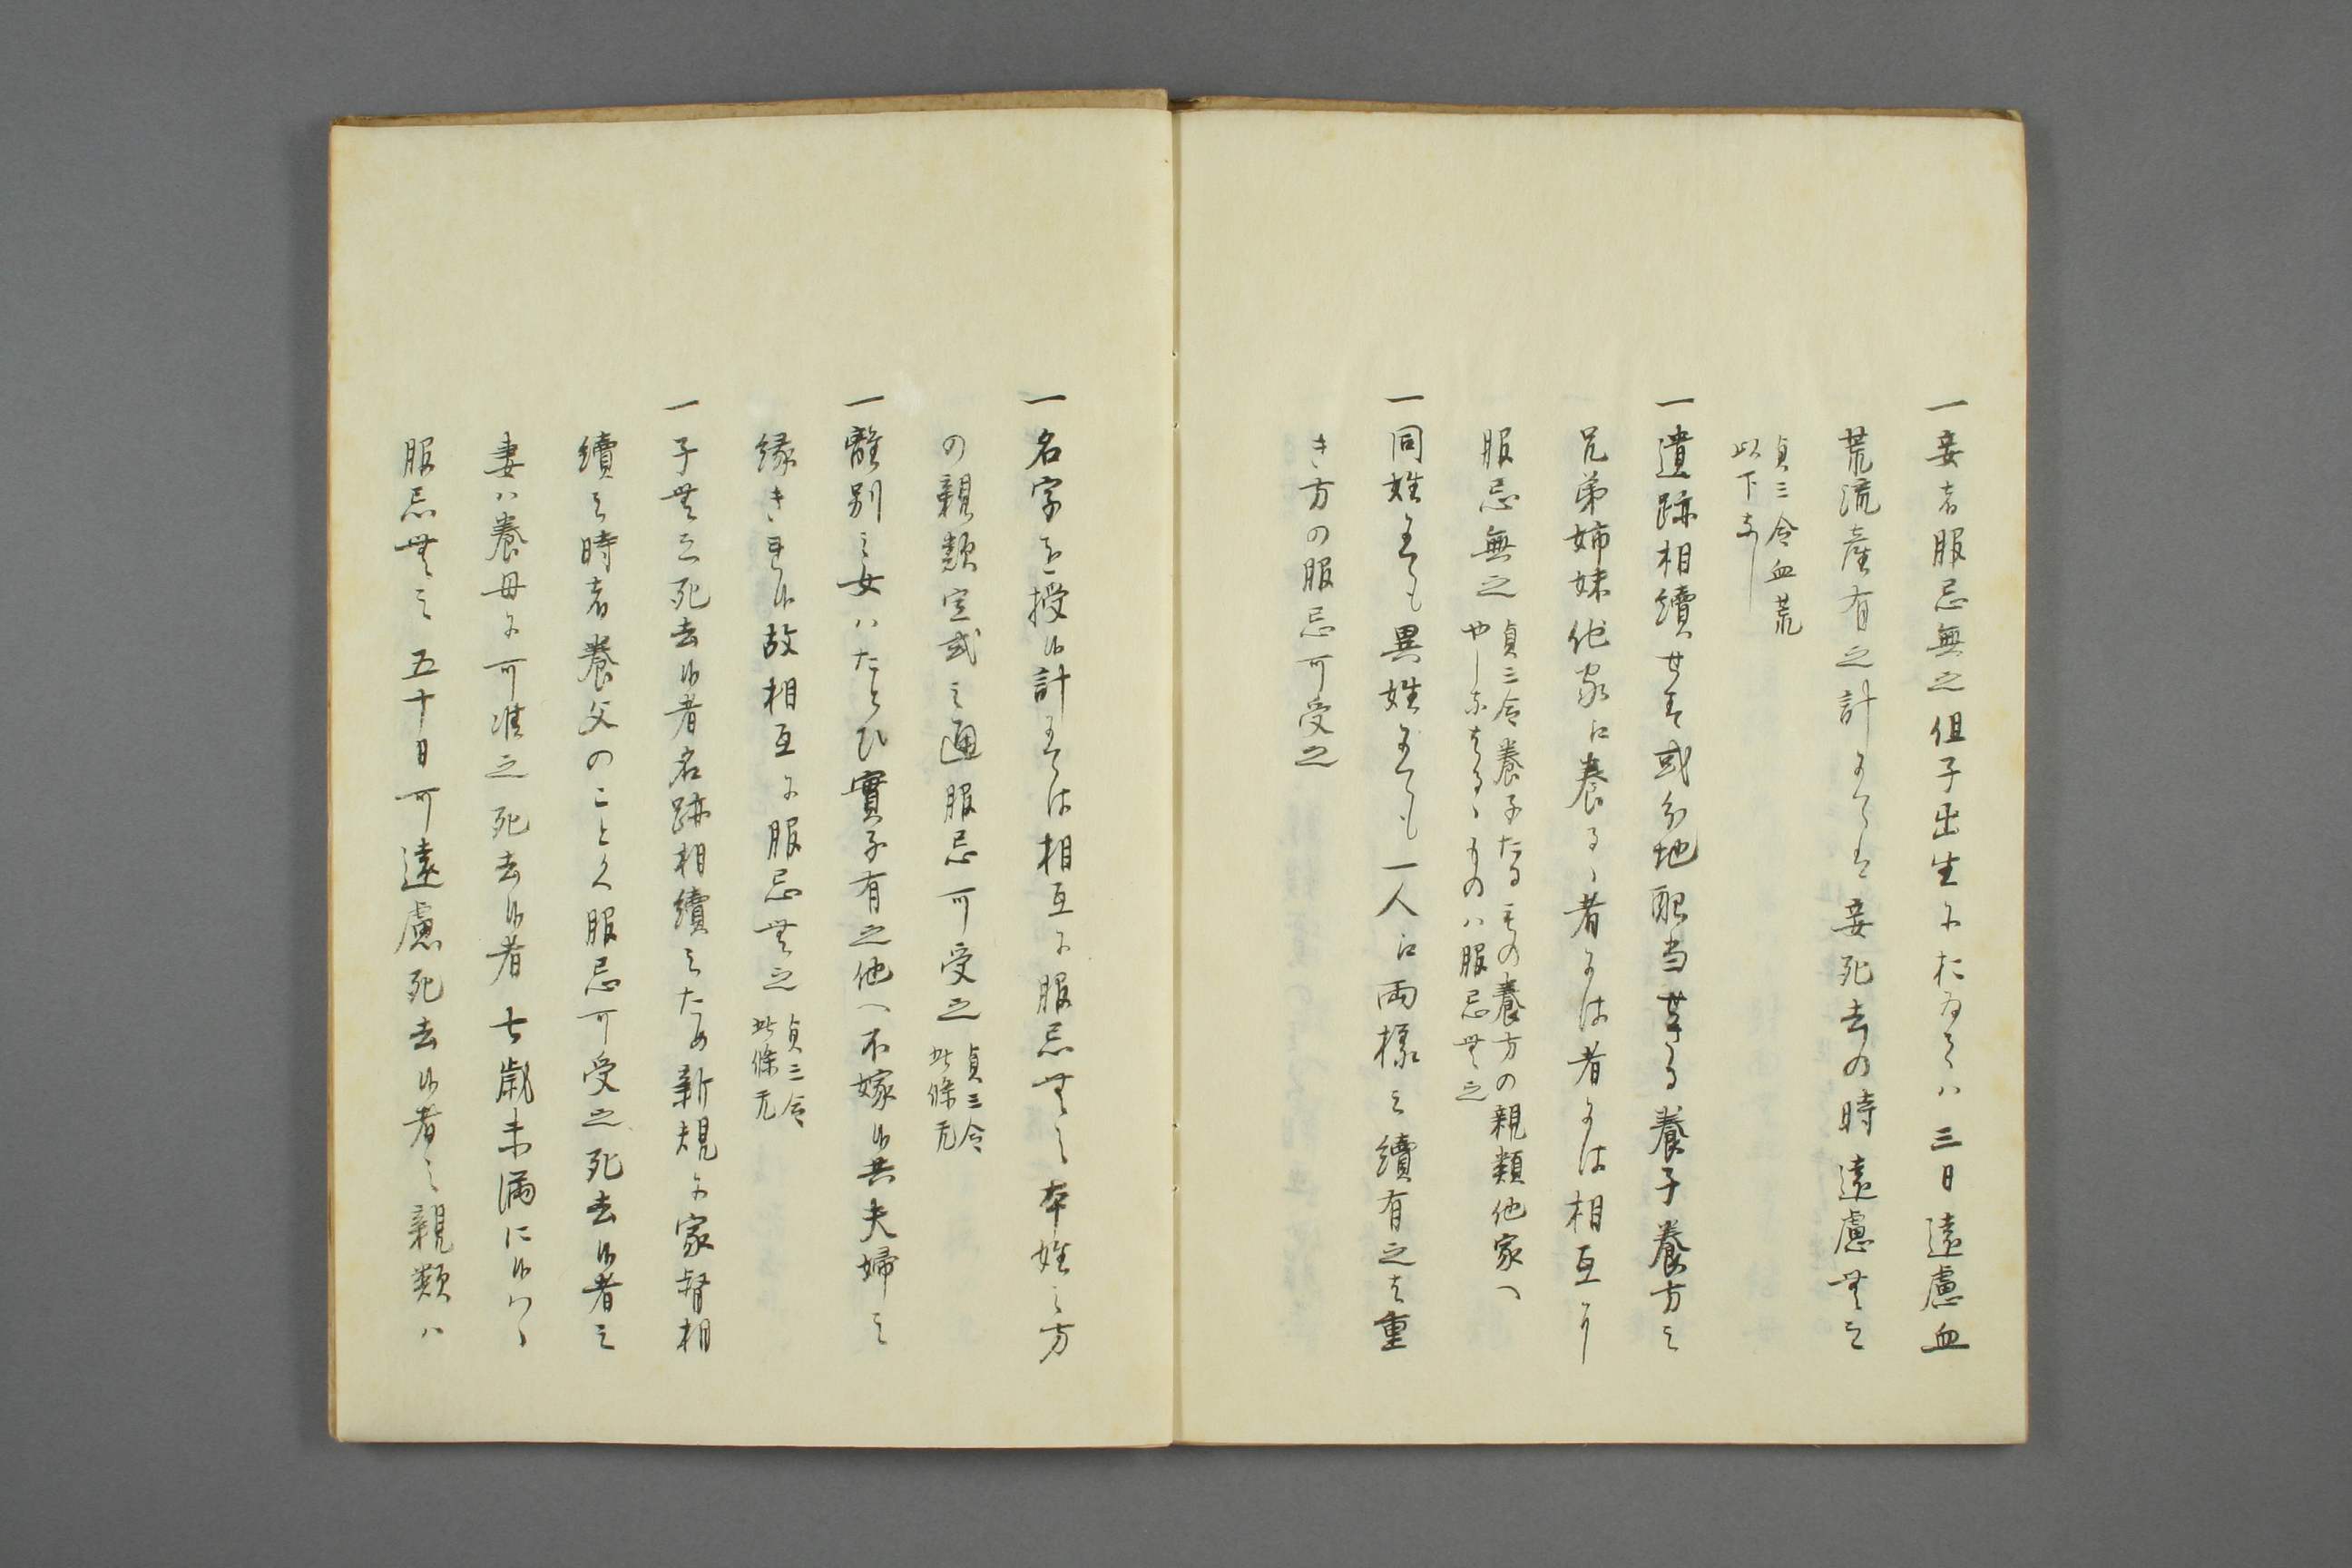 一妾者服忌無之但子出生におゐてハ三日遠慮血
荒流産有之計にてハ妾死去の時遠慮無之
貞三令血荒
以下なし
一遺跡相續せす或分地配当せさる養子養方之
兄弟姉妹他家に養るゝ者にては者にては相互に
服忌無之
貞三令養子たるもの養方の親類他家へ
やしなはるゝものハ服忌無之
一同姓にても異姓にても一人に両様之續有之は重
き方の服忌可受之
一名字を授候計にては相互に服忌無之本姓之方
の親類定式之通服忌可受之
貞三令
此條无
一離別之女ハたとひ實子有之他へ不嫁候共夫婦之
縁きれ候故相互に服忌無之
貞三令
此條无
一子無之死去候者名跡相續之ため新規に家督相
續之時者養父のことく服忌可受之死去候者之
妻ハ養母に可准之死去候者七歳未満に候ハゝ
服忌無之五十日可遠慮死去候者之親類ハ